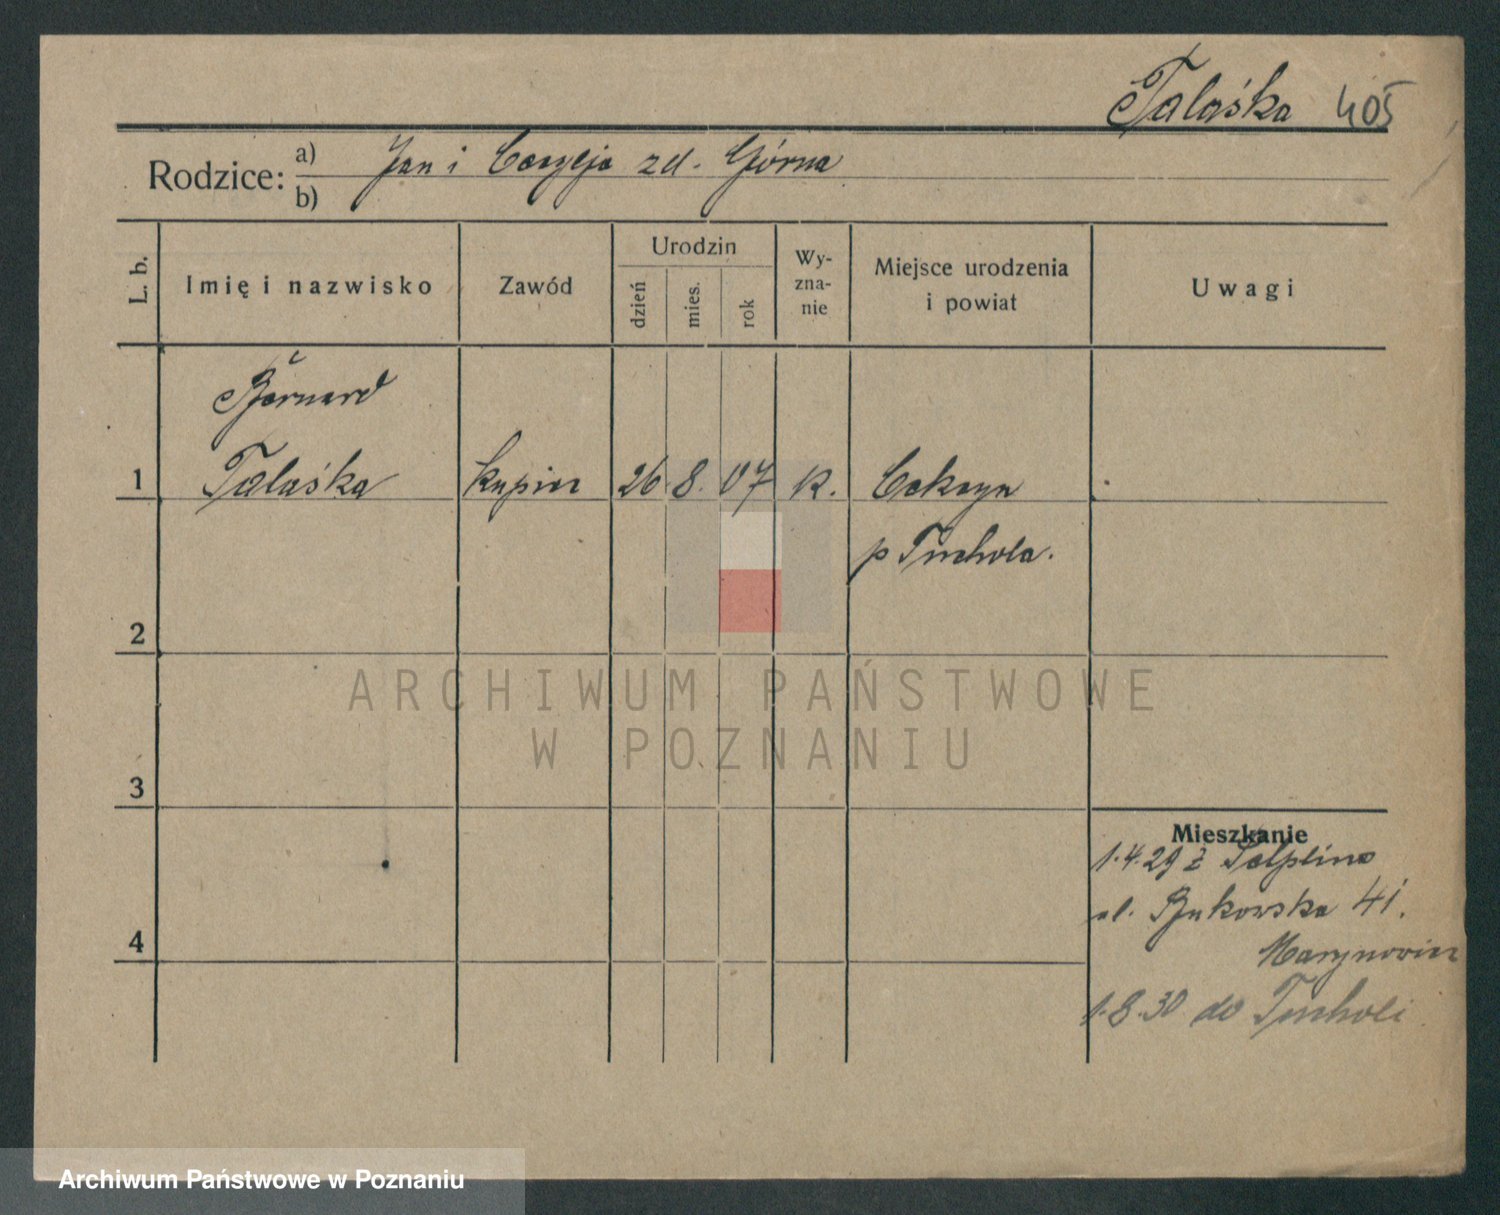 Talaśka 405
Rodzice: a) Jan i Cecylja zd. Górna
b)
L. b.
Imię i nazwisko
Zawód
Urodzin
dzień
mies.
rok
Wy-
zna-
nie
Miejsce urodzenia
i powiat
Uwagi
Bernard
1 Talaśka kupiec 26 8. 07 k. Cekcyn
p Tuchola.
2
ARCHIWUM PAŃSTWOWE
W POZNANIU
3
Mieszkanie
1.4.29 z Pelplina
ul. Bukowska 41.
4
1.8.30 do Tucholi
Archiwum Państwowe w Poznaniu